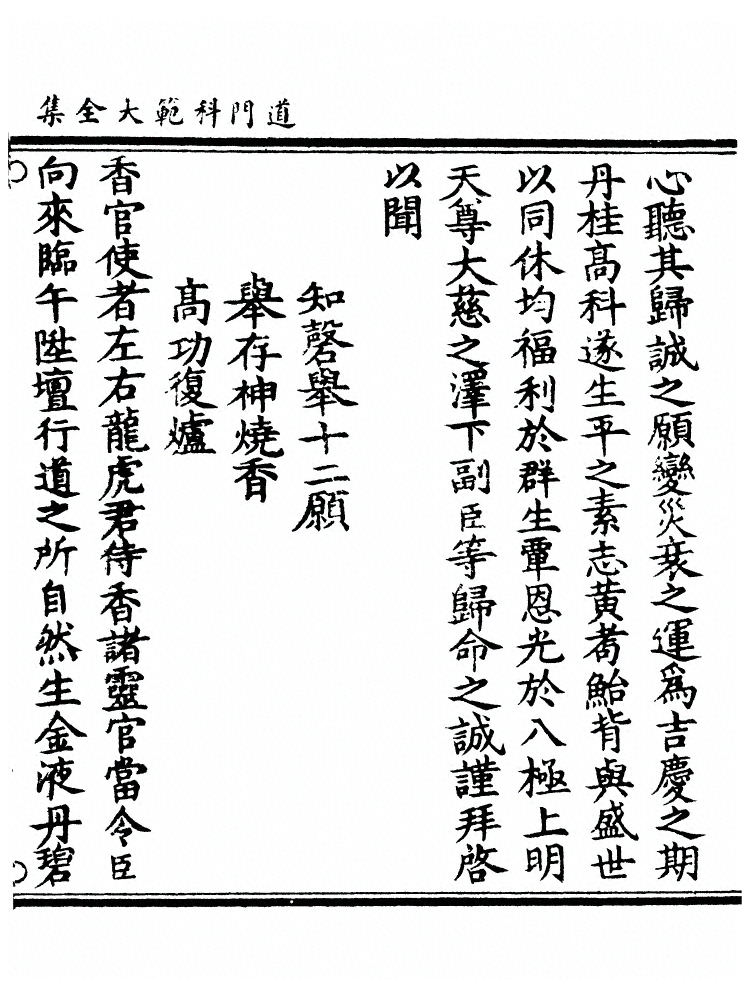 道門科範大全集
心聽其歸誠之願變災衰之運爲吉慶之期
丹桂高科遂生平之素志黃耇鮐背與盛世
以同休均福利於群生覃恩光於八極上明
天尊大慈之澤下副臣等歸命之誠謹拜啓
以聞
知磬舉十二願
舉存神燒香
高功復爐
香官使者左右龍虎君侍香諸靈官當令臣
向來臨午陞壇行道之所自然生金液丹碧